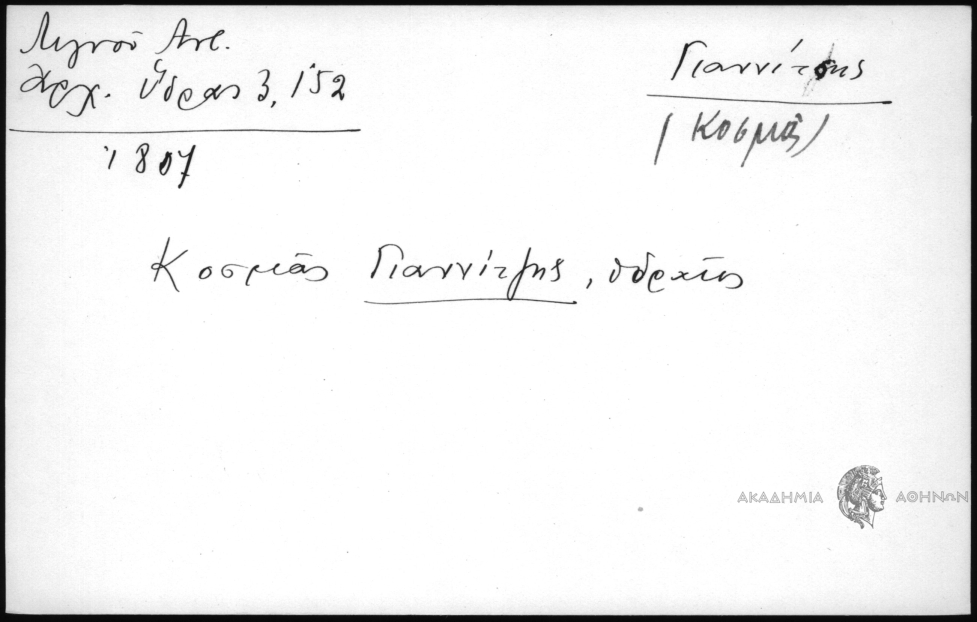 Λιγνοῦ Ἀντ.
Ἀρχ. Ὕδρας 3, 152
1807
Γιαννίτσης
(Κοσμᾶς)
Κοσμᾶς Γιαννίτζης, ὑδραῖος
ΑΚΑΔΗΜΙΑ ΑΘΗΝΩΝ